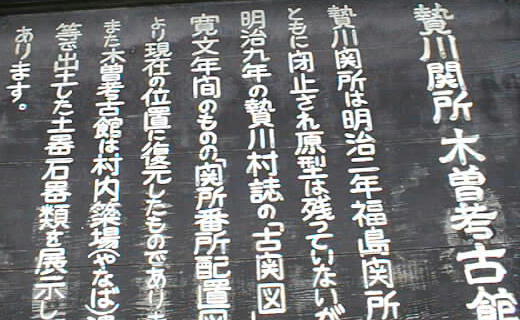 贄川関所 木曽考古館
贄川関所は明治二年福島関所
ともに閉止され原型は残っていないが
明治九年の贄川村誌の「古関図」
寛文年間のものの「関所番所配置図
より現在の位置に復元したものでありま
また木曽考古館は村内簗場(やなば)遺
等で出土した土器石器類を展示し
あります。